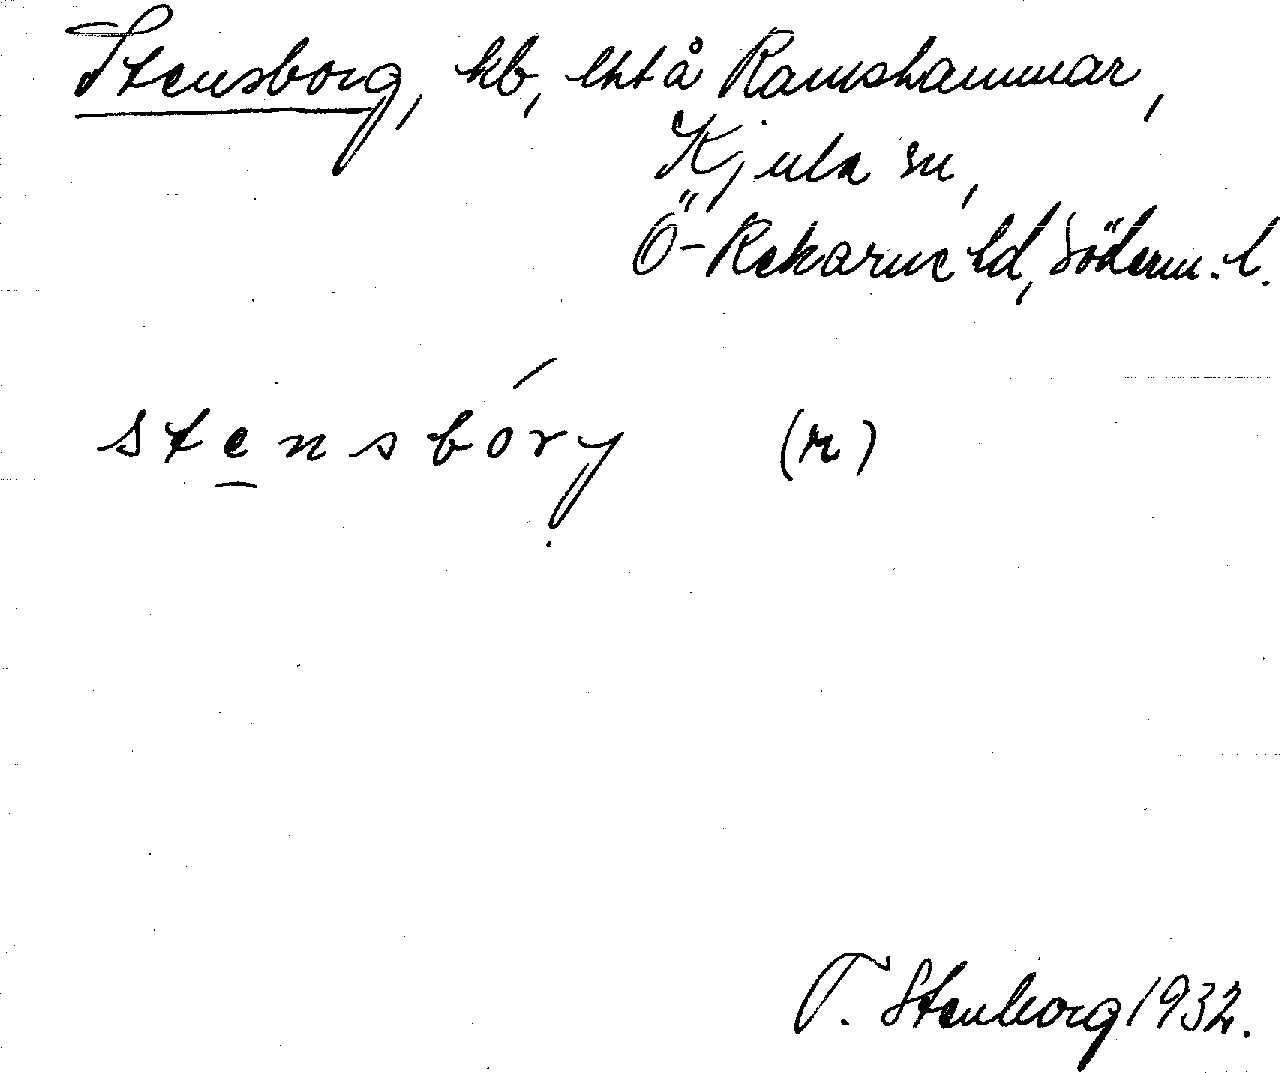 Stensborg, kb, lht å Ramshammar,
Kjula sn,
Ö-Rekarne hd, Söderm. l.
stensbóry (r)
T. Stenborg 1932.